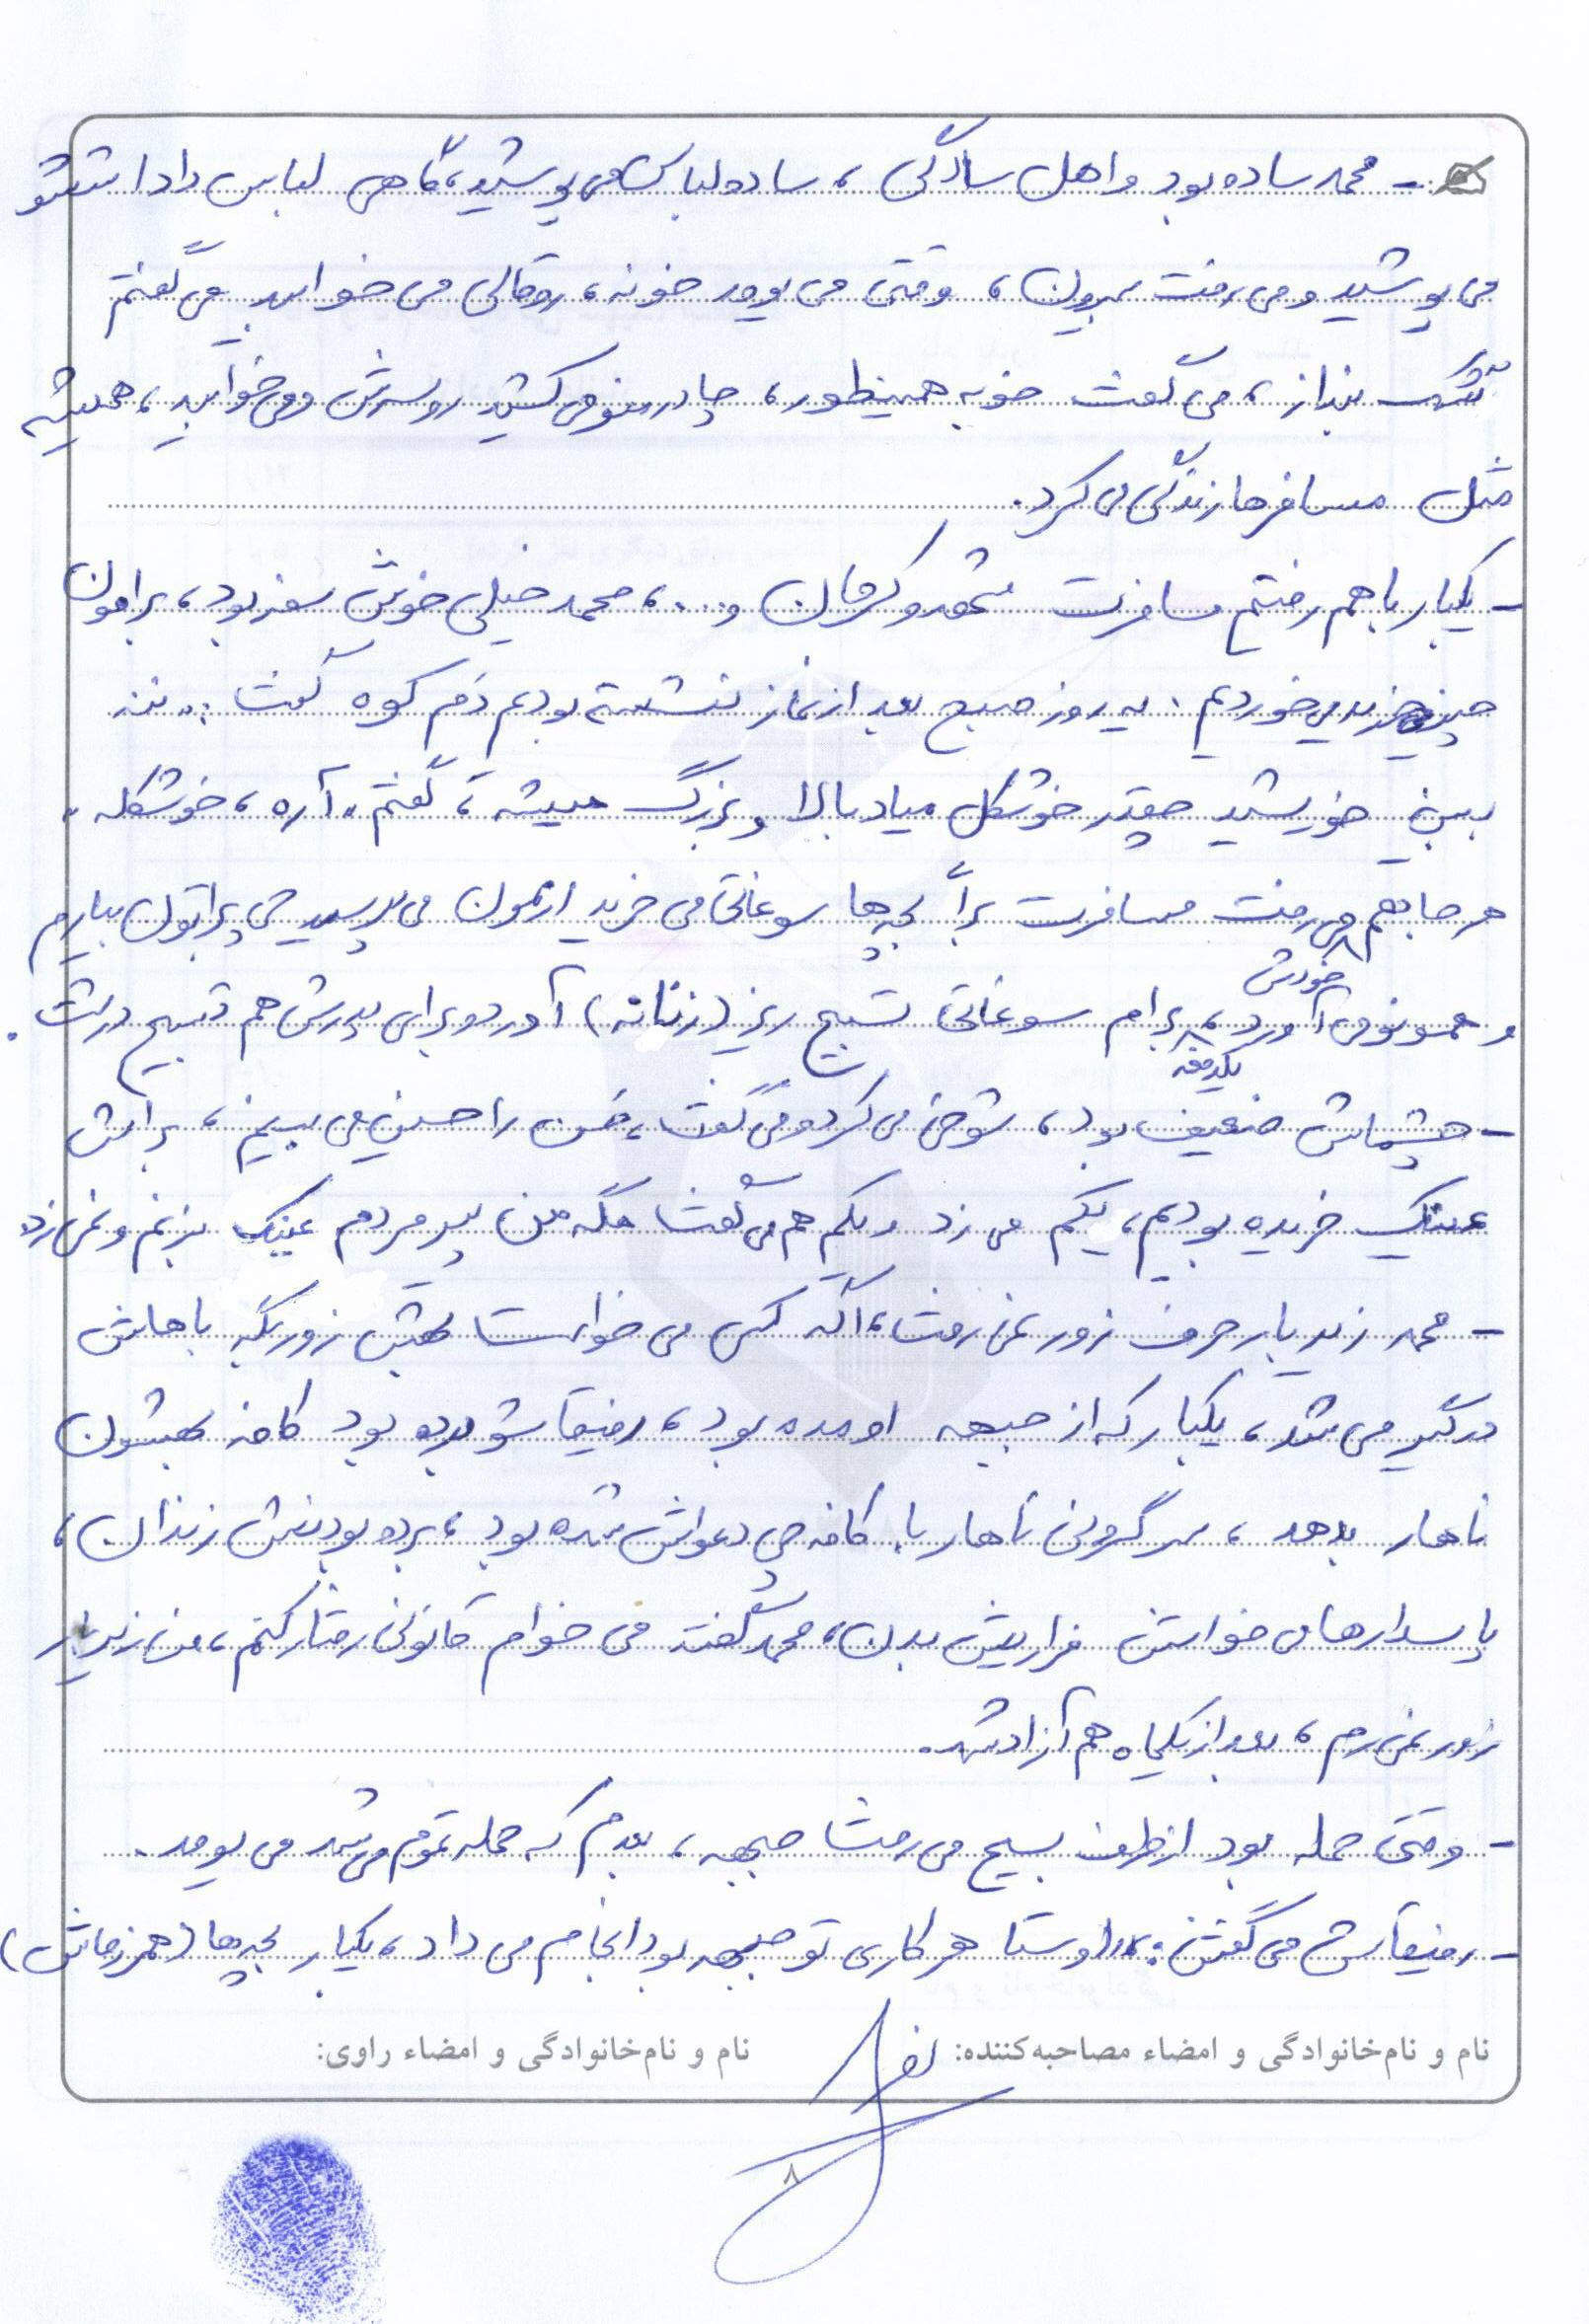 - محمد ساده بود و اهل سادگی، ساده لباس می پوشید، گاهی لباس داداششو
می پوشید و می رفت بیرون، وقتی می یومد خونه، روقالی می خوابید می گفتم
تشک بنداز، می گفت خوبه همینطور، چادر منو می کشید رو سرش و می خوابید، همیشه
مثل مسافرها زندگی می کرد.
- یکبار با هم رفتیم مسافرت مشهد و کرمان و...، محمد خیلی خوش سفر بود، برامون
چیز می خرید می خوردیم. یه روز صبح بعد از نماز نشسته بودیم دَم کوه گفت: «ننه
ببین خورشید چقدر خوشکل میاد بالا و بزرگ میشه»، گفتم «آره، خوشکله»
هر جا هم می رفت مسافرت برا بچه ها سوغاتی می خرید ازمون می پرسید چی براتون بیارم
خودش
و همونو می آورد، برام سوغاتی تسبیح ریز (زنانه) آورد و برای پدرش هم تسبیح درشت.
یکدفعه
- چشماش ضعیف بود، شوخی می کرد و می گفت، حسن را حسین می بینم، براش
عینک خریده بودیم، یکم می زد و یکم هم می گفت مگه من پیرمردم عینک بزنم و نمی زد
- محمد زیر بار حرف زور نمی رفت، اگه کسی می خواست بهش زور بگه باهاش
درگیر می شد، یکبار که از جبهه اومده بود، رفیقاشو برده بود کافه بهشون
ناهار بدهد، سر گرونی ناهار با کافه چی دعواش شده بود، برده بودنش زندان،
پاسدارها می خواستن فراریش بدن، محمد گفت می خوام قانونی رفتار کنم، من زیر بار
زور نمی رم، بعد از یکماه هم آزاد شد.
- وقتی حمله بود از طرف بسیج می رفت جبهه، بعدم که حمله تموم می شد می یومد.
- رفیقاش می گفتن: «اوستا هر کاری تو جبهه بود انجام می داد، یکبار بچه ها (همرزماش)
نام و نام خانوادگی و امضاء مصاحبه کننده: نام و نام خانوادگی و امضاء راوی:
۸